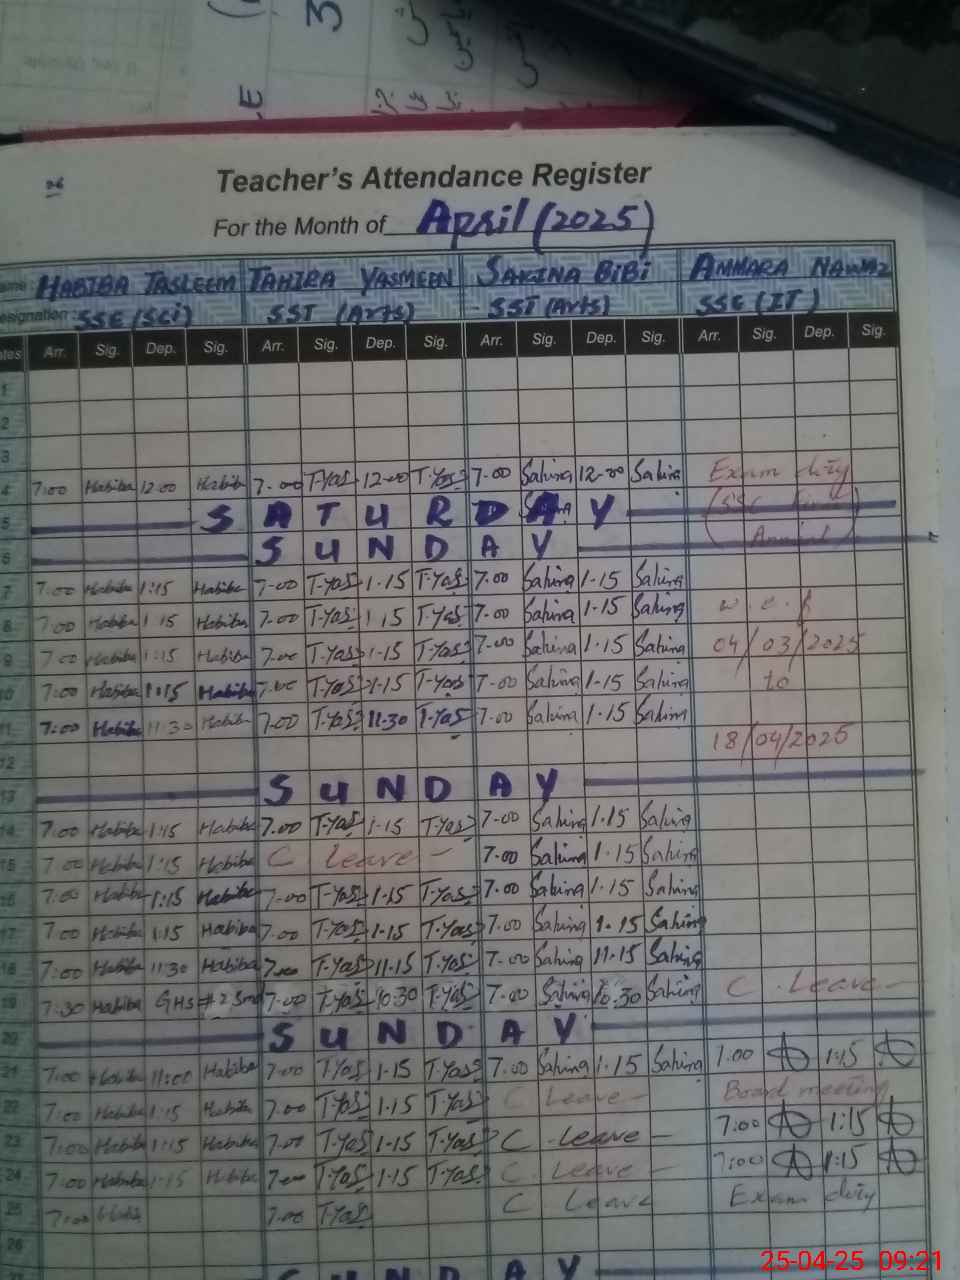 26
Teacher's Attendance Register
For the Month of April (2025)
HABIBA TASLEEM TAHIRA YASMEEN SAKINA BIBI AMMARA NAWAZ
SSE (Sci) SST (Arts) SST (Arts) SSE (IT)
Arr. Sig. Dep. Sig. Arr. Sig. Dep. Sig. Arr. Sig. Dep. Sig. Arr. Sig. Dep. Sig.
1
2
3
4 7:00 Habiba 12:00 Habiba 7-00 T-Yas 12-00 T-Yas 7-00 Sakina 12-00 Sakina Exam duty
5 SATURDAY (SSC
6 SUNDAY Annual)
7 7:00 Habiba 1:15 Habiba 7-00 T-Yas 1-15 T-Yas 7-00 Sakina 1-15 Sakina
8 7:00 Habiba 1:15 Habiba 7-00 T-Yas 1.15 T-Yas 7-00 Sakina 1-15 Sakina w.e.f
9 7:00 Habiba 1:15 Habiba 7-00 T-Yas 1-15 T-Yas 7-00 Sakina 1-15 Sakina 04/03/2025
10 7:00 Habiba 1:15 Habiba 7-00 T-Yas 1-15 T-Yas 7-00 Sakina 1-15 Sakina to
11 7:00 Habiba 11:30 Habiba 7-00 T-Yas 11-30 T-Yas 7-00 Sakina 1-15 Sakina
12 18/04/2025
13 SUNDAY
14 7:00 Habiba 1:15 Habiba 7.00 T-Yas 1-15 T-Yas 7-00 Sakina 1.15 Sakina
15 7:00 Habiba 1:15 Habiba C Leave - 7-00 Sakina 1-15 Sakina
16 7:00 Habiba 1:15 Habiba 7-00 T-Yas 1-15 T-Yas 7-00 Sakina 1-15 Sakina
17 7:00 Habiba 1:15 Habiba 7.00 T-Yas 1-15 T-Yas 7-00 Sakina 1-15 Sakina
18 7:00 Habiba 11:30 Habiba 7-00 T-Yas 11-15 T-Yas 7-00 Sakina 11-15 Sakina
19 7:30 Habiba GHS #2 7-00 T-Yas 10:30 T-Yas 7-00 Sakina 10-30 Sakina C. Leave -
20 SUNDAY
21 7:00 Habiba 11:00 Habiba 7-00 T-Yas 1-15 T-Yas 7.00 Sakina 1-15 Sakina 7.00 1:15
22 7:00 Habiba 1:15 Habiba 7.00 T-Yas 1-15 T-Yas C Leave - Board meeting
23 7:00 Habiba 1:15 Habiba 7-00 T-Yas 1-15 T-Yas C. leave - 7:00 1:15
24 7:00 Habiba 1:15 Habiba 7-00 T-Yas 1-15 T-Yas C. Leave - 7:00 1:15
25 7:00 7.00 T-Yas C Leave Exam duty
26
SUNDAY
25-04-25 09:21